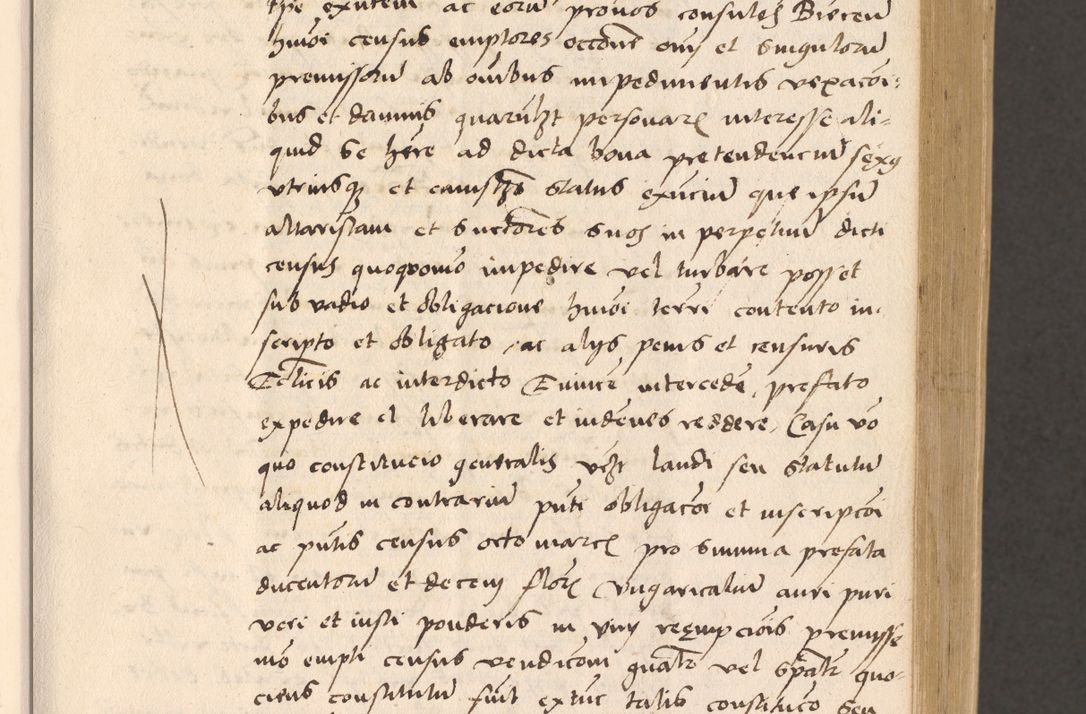 ac eorum pronos consules Biecen
huiusmodi census emptores occasione omnium et singulorum
premissorum ab omnibus impedimentis vexacioni-
bus et damnis quarumlibet personarum interesse ali-
quid se habere ad dicta bona pretendencium sexus
utriusque et cuiuscumque status existencium que ipsum
altaristam et successores suos in perpetuum dicti
census quoquomodo impedire vel turbare posset
sub vadio et obligacione huiusmodi terre contento in-
scripto et obligato, ac aliis penis et censuris
Ecclesiasticis ac interdicto Evincere intercedere, prefato
expedire et liberare et indemnes reddere, Casu vero
quo constitucio generalis laudi seu statutum
aliquod in contrarium presenti obligacioni et inscripcioni
ac presentis census octo marcarum pro summa prefata
ducentorum et decem florenorum Ungaricalium auri puri
veri et iusti ponderis in vim reempcionis premisse
modo empti census vendicioni generaliter vel specialiter quo-
ciens constitutum fuerit extunc talis constitucio seu